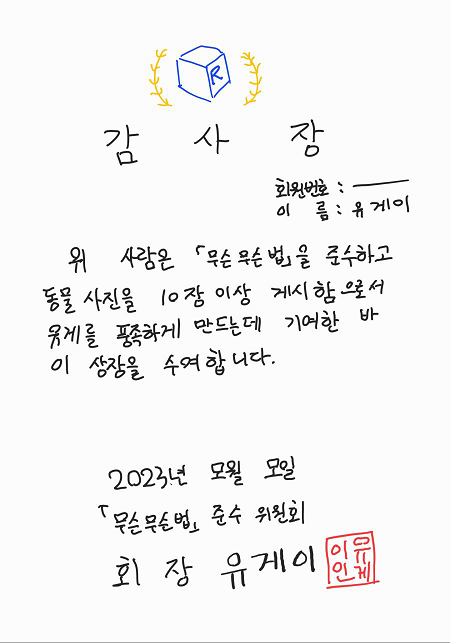 R
감 사 장
회원번호 : ———
이 름 : 유게이
위 사람은 「무슨무슨법」을 준수하고
동물 사진을 10장 이상 게시함으로서
유게를 풍족하게 만드는데 기여한 바
이 상장을 수여합니다.
2023년 모월 모일
「무슨무슨법」 준수 위원회
회 장 유게이
이유
인게